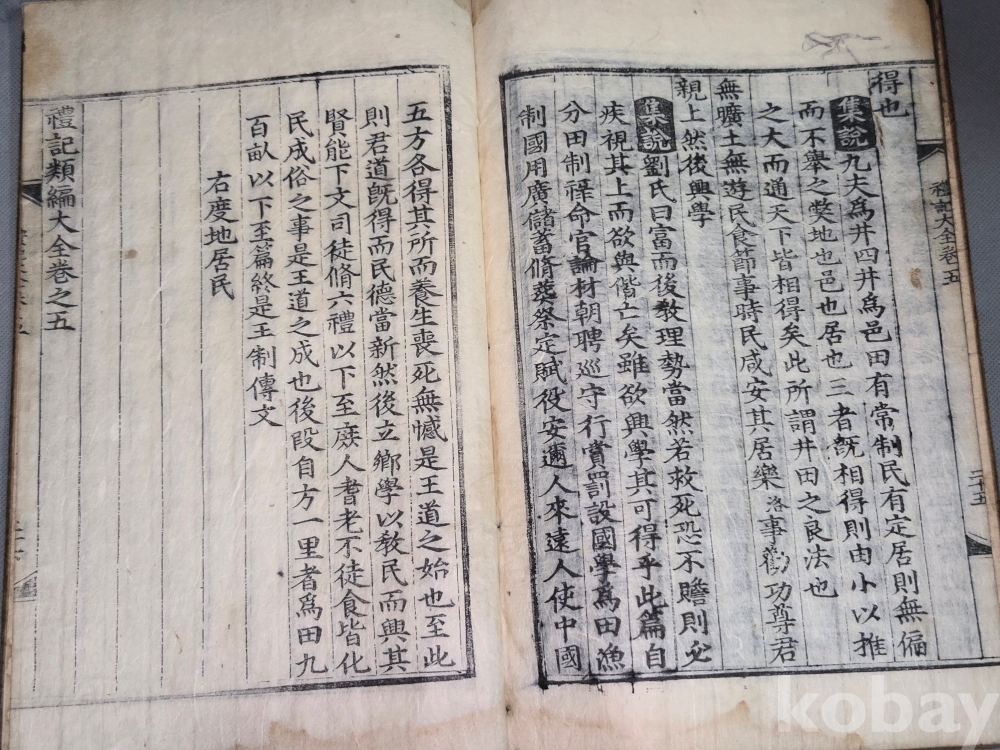 禮記大全卷五 二十五
得也
集說九夫爲井四井爲邑田有常制民有定居則無偏
而不舉之獘地也邑也居也三者旣相得則由小以推
之大而通天下皆相得矣此所謂井田之良法也
無曠土無遊民食節事時民咸安其居樂洛事勸功尊君
親上然後興學
集說劉氏曰富而後敎理勢當然若救死恐不贍則必
疾視其上而欲與偕亡矣雖欲興學其可得乎此篇自
分田制祿命官論材朝聘巡守行賞罰設國學爲田漁
制國用廣儲蓄脩葬祭定賦役安邇人來遠人使中國
五方各得其所而養生喪死無憾是王道之始也至此
則君道旣得而民德當新然後立鄕學以敎民而興其
賢能下文司徒脩六禮以下至庶人耆老不徒食皆化
民成俗之事是王道之成也後段自方一里者爲田九
百畒以下至篇終是王制傳文
右度地居民
禮記類編大全卷之五
kobay